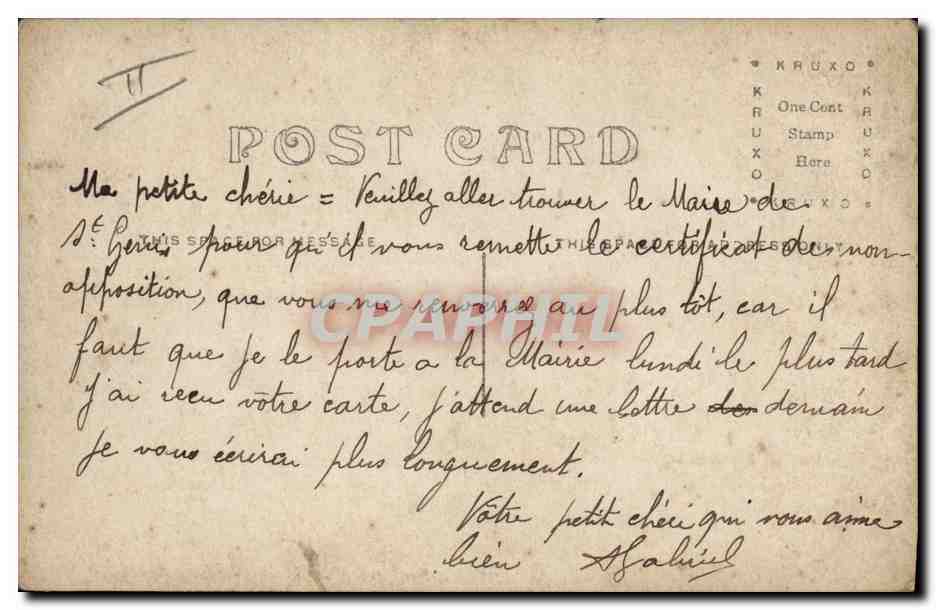 II
KRUXO
KRUXO
KRUXO
KRUXO
One Cent
Stamp
Here
POST CARD
Ma petite chérie = Veuillez aller trouver le Maire de
St. Genis pour qu'il vous remette le certificat de non-
THIS SPACE FOR MESSAGE THIS SPACE FOR ADDRESS ONLY
opposition, que vous me renverrez au plus tôt, car il
CPAPHIL
faut que je le porte a la Mairie lundi le plus tard
j'ai recu vôtre carte, j'attend une lettre demain
je vous écrirai plus longuement.
Vôtre petit chéri qui vous aime
bien Gabriel